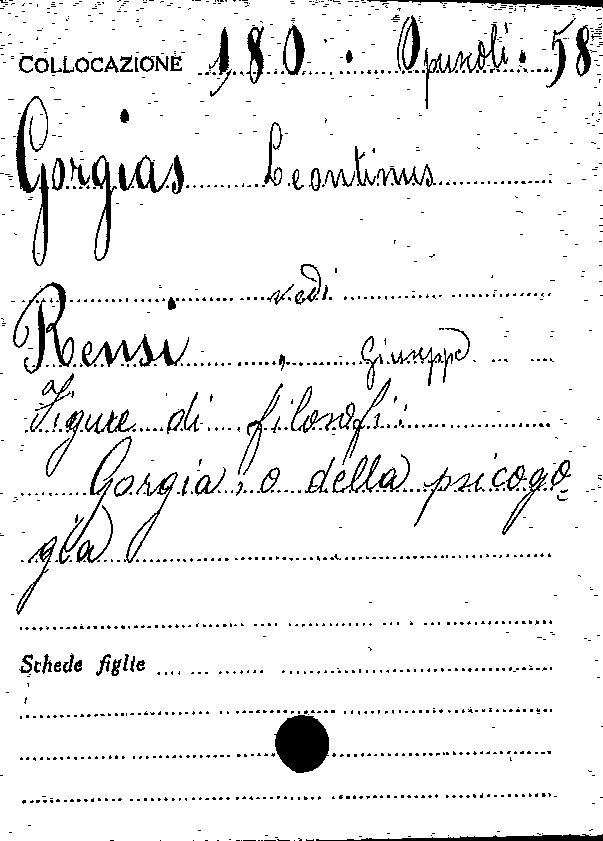 COLLOCAZIONE 180 . Opuscoli . 58
Gorgias Leontinus
vedi
Rensi, Giuseppe
Figure di filosofi:
Gorgia, o della psicogo-
gia
Schede figlie